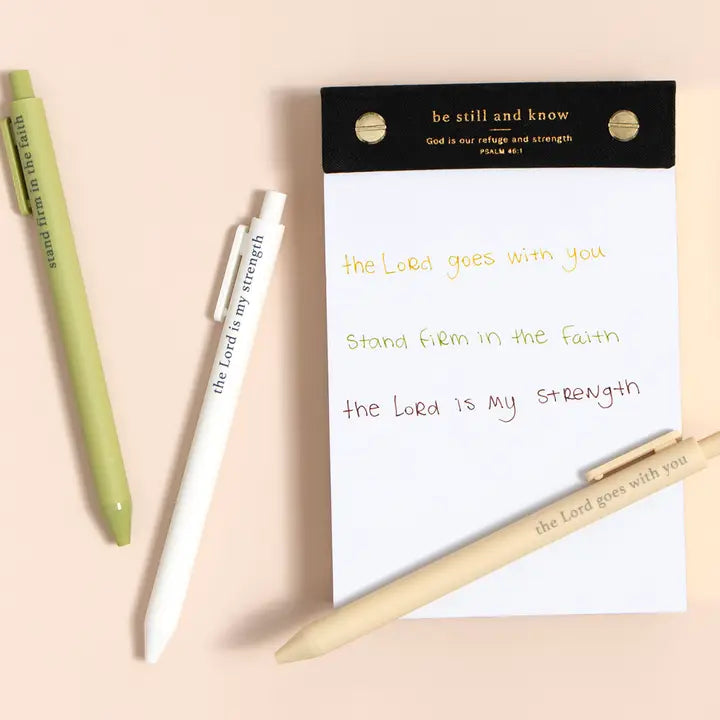 stand firm in the faith
the Lord is my strength
be still and know
God is our refuge and strength
PSALM 46:1
the Lord goes with you
stand firm in the faith
the Lord is my strength
the Lord goes with you